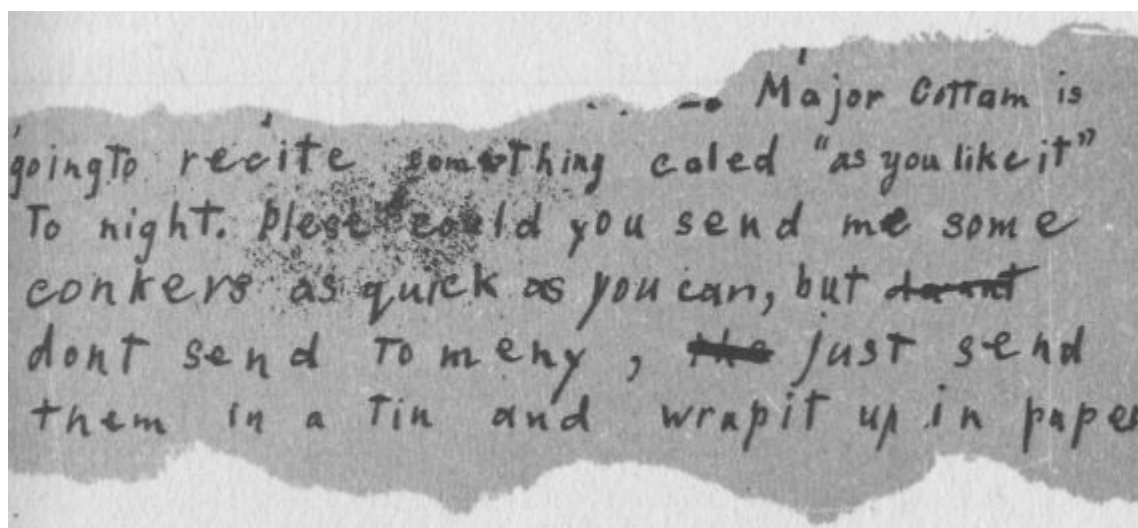 Major Cottam is
going to recite something caled "as you like it"
To night. Plese could you send me some
conkers as quick as you can, but daunt
dont send To meny, the just send
them in a Tin and wrap it up in paper